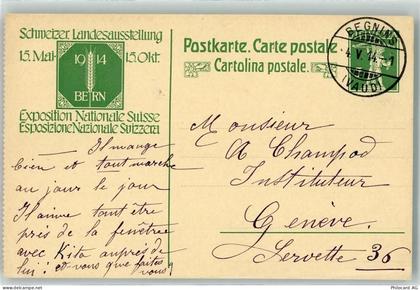 Schweizer Landesausstellung
15. Mai 15. Okt.
19 14
BERN
Exposition Nationale Suisse
Esposizione Nazionale Svizzera
Postkarte. Carte postale.
Cartolina postale.
BEGNINS
4.V.14.
(VAUD)
Il mange
bien et tout marche
au jour le jour
Il aime tout être
près de la fenêtre
avec Kita auprès de
lui! et vous que faites
vous?
Monsieur
A Champod
Instituteur
Genève.
Servette 36